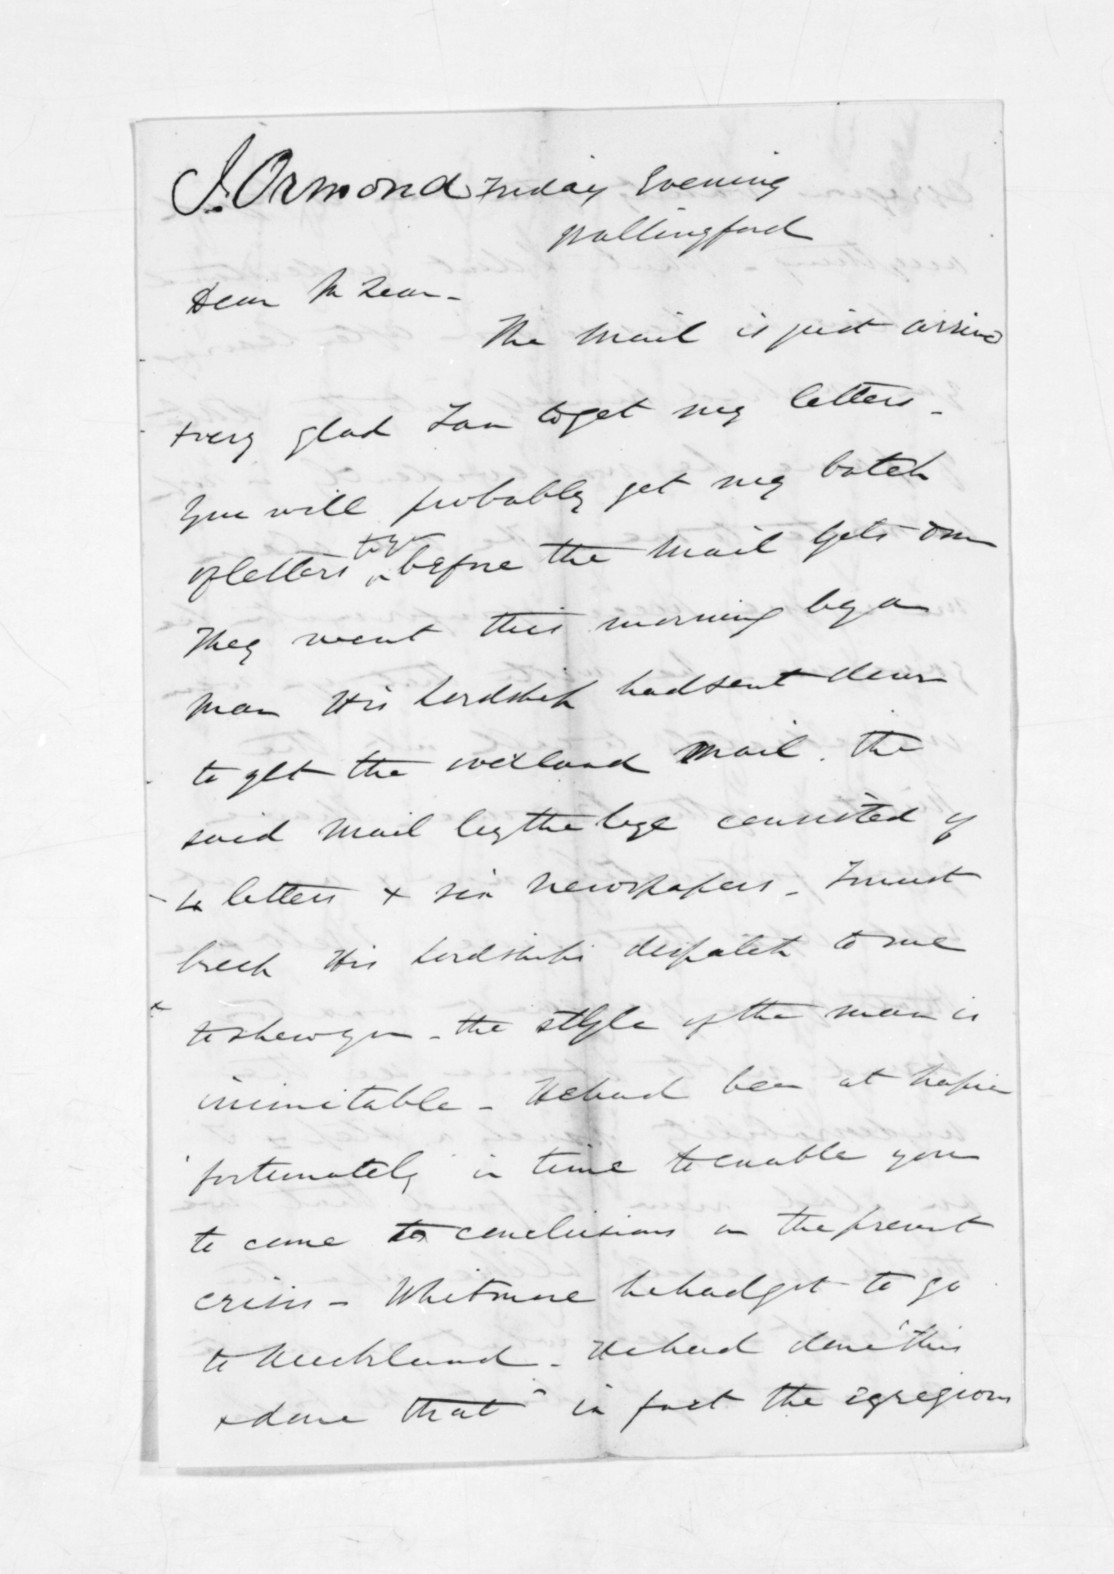 J. Ormond Friday Evening
Wallingford
Dear McLean -
The Mail is just arrived
& very glad I am to get my letters -
You will probably get my batch
of letters to go before the Mail gets on
They went this morning by a
man His Lordship had sent down
to get the overland Mail. the
said Mail by the bye consisted of
letters & six Newspapers - I must
keep His Lordship's dispatch to me
to shew you - the style of the man is
inimitable - He had been at Napier
"fortunately" in time to enable you
to come to conclusions on the present
crisis - Whitmore he had got to go
to Auckland - He had done "this
& done that" in fact the egregious